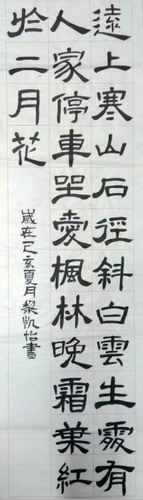 遠上寒山石徑斜白雲生處有
人家停車坐愛楓林晚霜葉紅
於二月花
歲在己亥夏月黎凱怡書